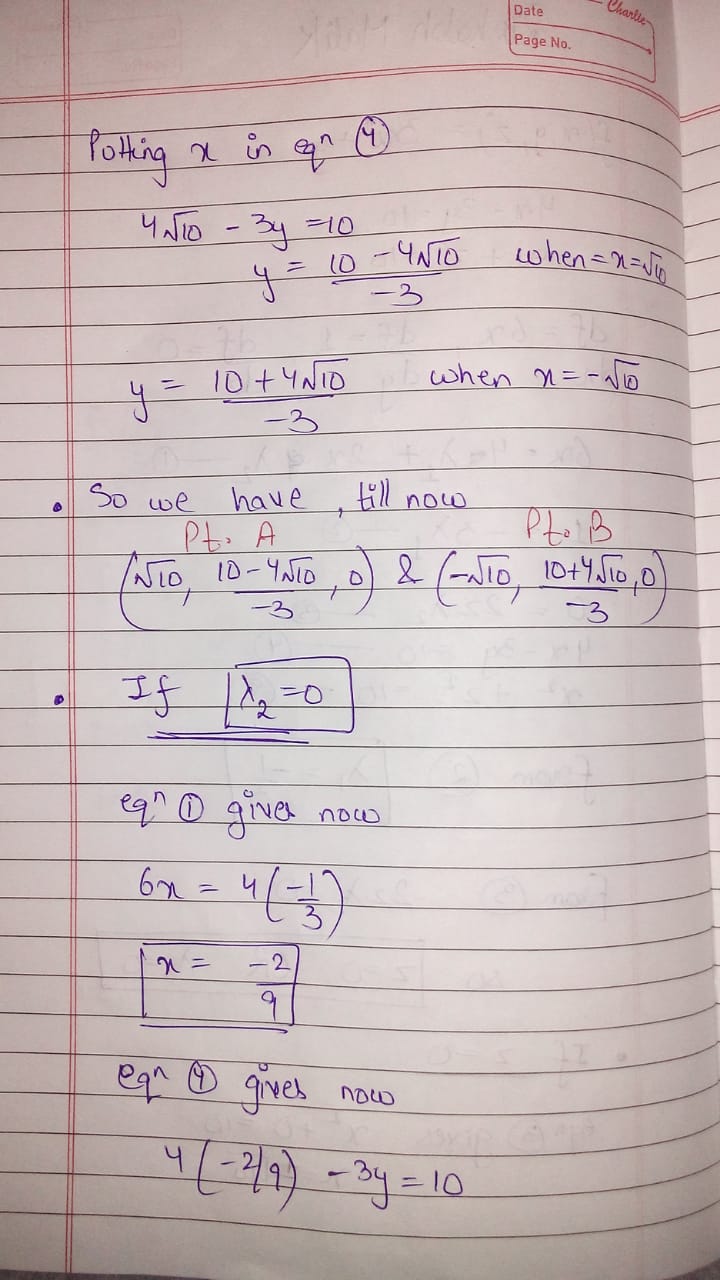 Date
Charlie
Page No.
Putting x in eqⁿ ④
4√10 - 3y = 10
y = (10 - 4√10)/-3 when = x = √10
y = (10 + 4√10)/-3 when x = -√10
• So we have, till now
Pt. A Pt. B
(√10, (10-4√10)/-3, 0) & (-√10, (10+4√10)/-3, 0)
• If λ₂ = 0
eqⁿ ① gives now
6x = 4(-1/3)
x = -2/9
eqⁿ ④ gives now
4(-2/9) - 3y = 10